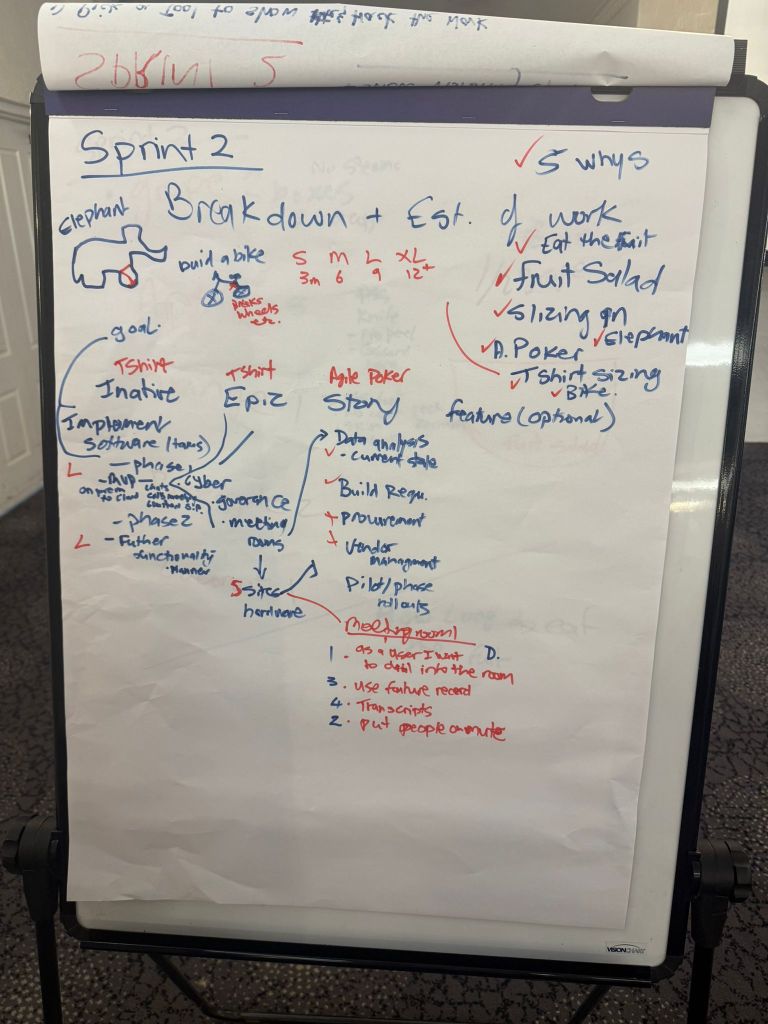 track the work
SPRINT 2
Sprint 2
✓ 5 whys
Breakdown + Est. of work
Elephant
buid a bike
S M L XL
3m 6 9 12+
wheels
etc.
✓ Eat the fruit
✓ fruit Salad
✓ Slizing an
✓ Elephant
✓ A. Poker
✓ Tshirt sizing
✓ Bike.
feature (optional)
goal.
TShirt
Inative
Implement
Software (tams)
L
- phase 1
- MVP
on prem
to cloud
- phase 2
L
- Futher
functionality
· Planner
TShirt
Epic
· Cyber
· governce
· meeting
rooms
5 sites
hardware
Agile Poker
Story
Data analysis
✓ - current state
✓ Build Requ.
+ procurement
+ Vendor
managment
Pilot/phase
rollouts
Meeting room 1
1 · as a user I want D.
to dial into the room
3 · use feature record
4 · Transcripts
2 · put people on mute
VISIONCHART